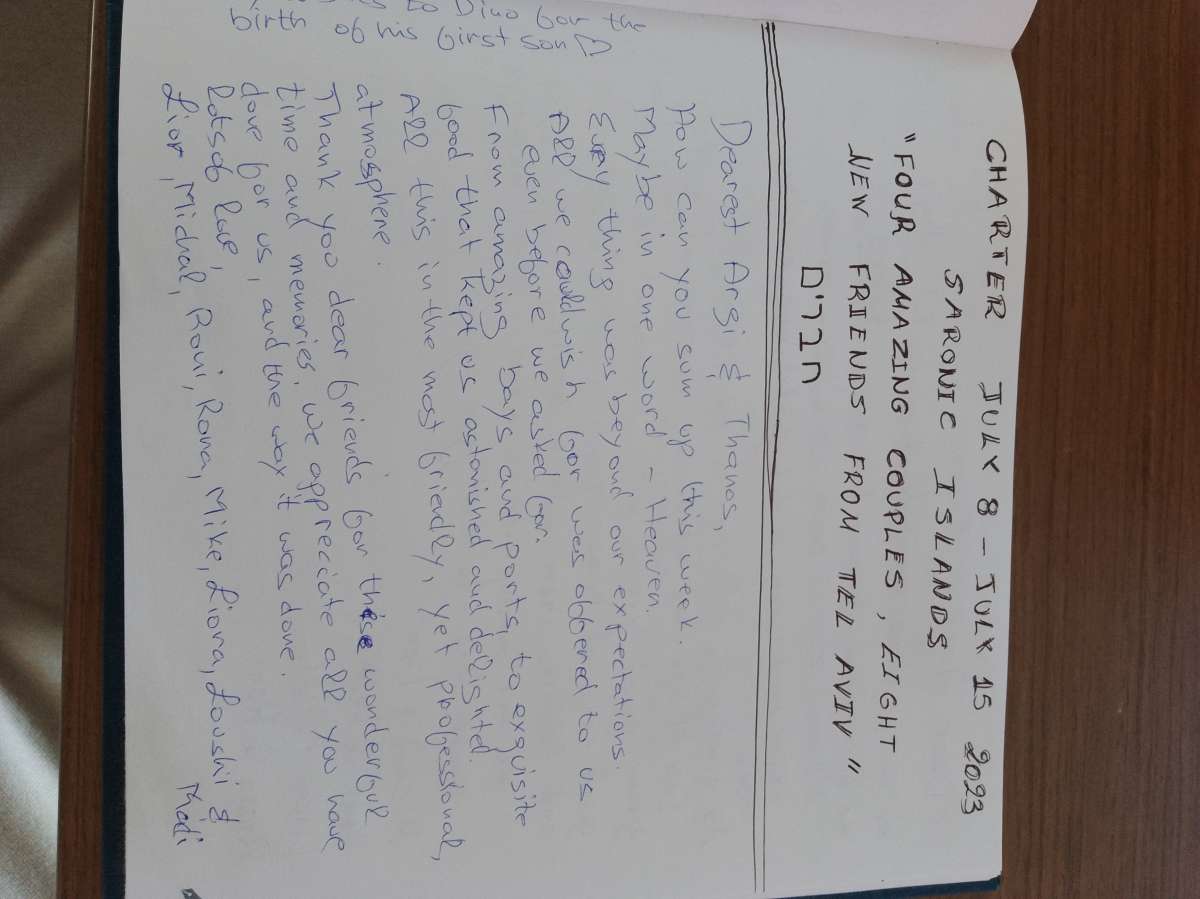 to Dino for the
birth of his first son
CHARTER JULY 8 - JULY 15 2023
SARONIC ISLANDS
"FOUR AMAZING COUPLES, EIGHT
NEW FRIENDS FROM TEL AVIV"
חברים
Dearest Argi & Thanos,
How can you sum up this week.
Maybe in one word - Heaven.
Every thing was beyond our expectations.
All we could wish for was offered to us
even before we asked for.
From amazing bays and ports, to exquisite
food that kept us astonished and delighted.
All this in the most friendly, yet professional,
atmosphere.
Thank you dear friends for these wonderful
time and memories. we appreciate all you have
done for us, and the way it was done.
Lots of love,
Lior, Michal, Roni, Rona, Mike, Liora, Loushi &